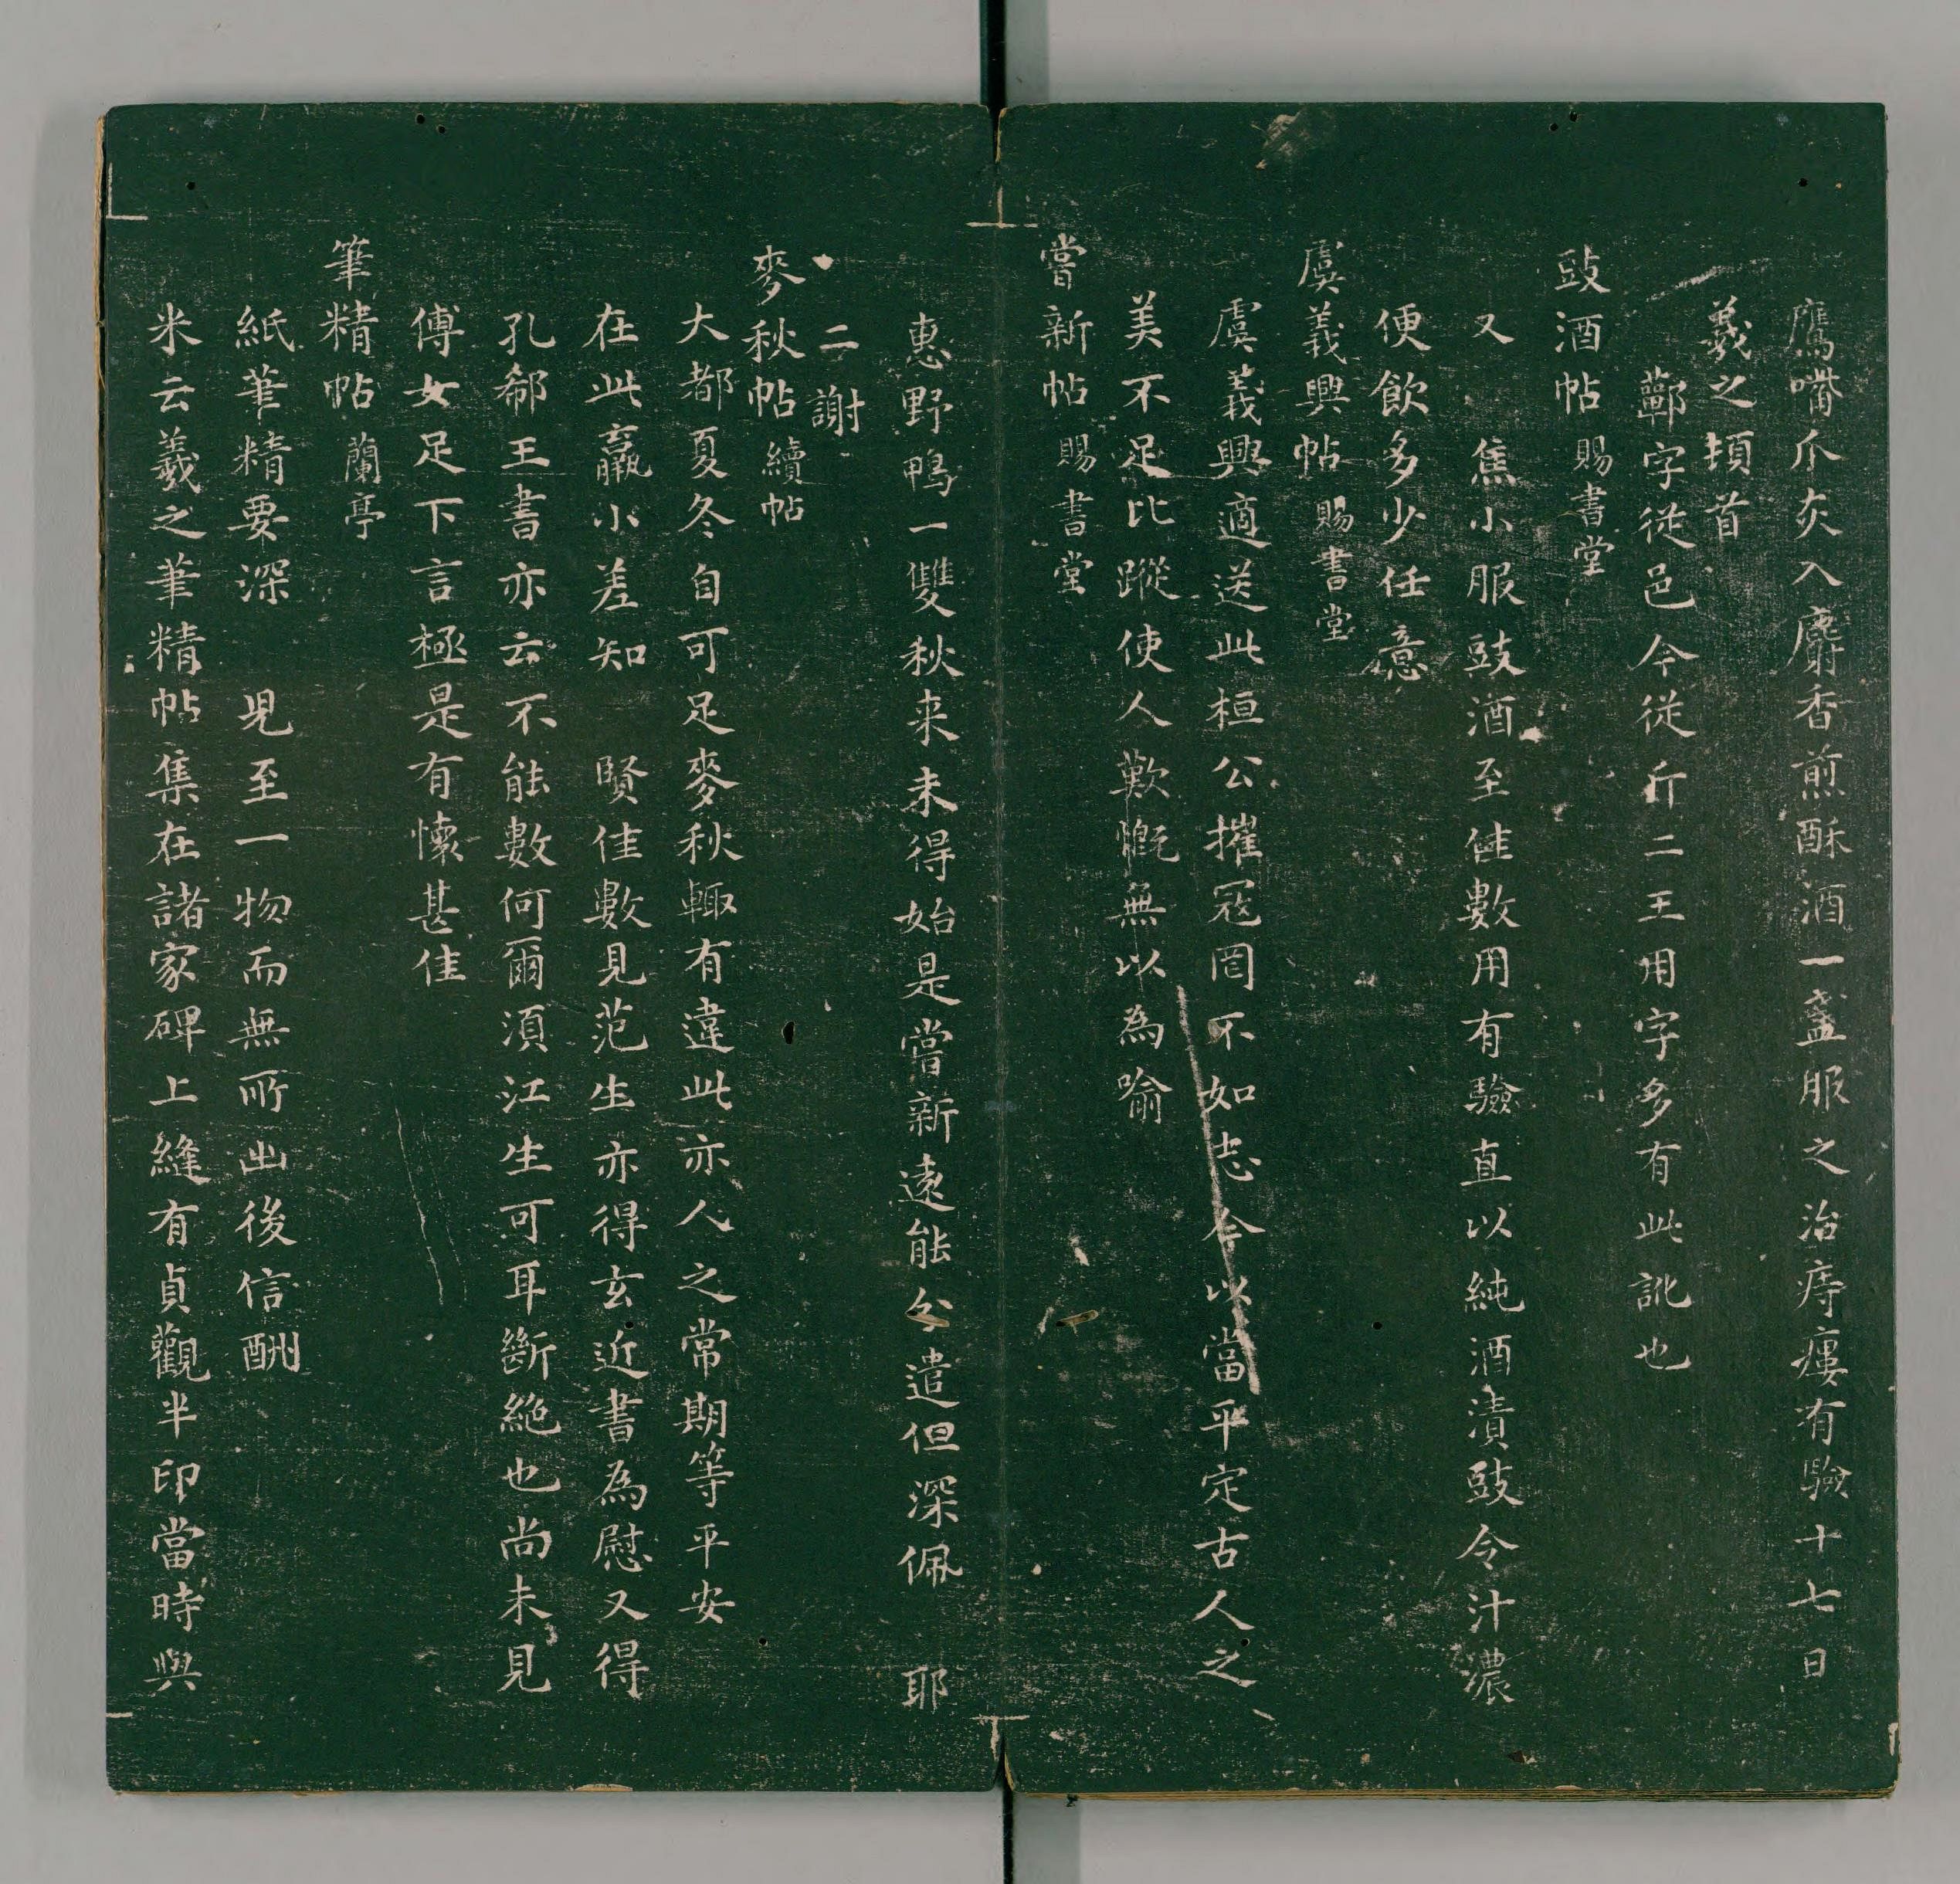 鷹嘴爪炙入麝香煎酥酒一盞服之治痔瘻有驗十七日
羲之頓首
鄿字從邑今從斤二王用字多有此訛也
豉酒帖賜書堂
又 焦小服豉酒至佳數用有驗直以純酒漬豉令汁濃
便飲多少任意
虞義興帖賜書堂
虞義興適送此桓公摧寇罔不如志今以當平定古人之
美不足比蹤使人歎慨無以為喻
嘗新帖賜書堂
惠野鴨一雙秋来未得始是嘗新遠能分遣但深佩 耶
二謝
麥秋帖續帖
大都夏冬自可足麥秋輒有違此亦人之常期等平安
在此羸小差知 賢佳數見范生亦得玄近書為慰又得
孔郗王書亦云不能數何爾須江生可耳斷絶也尚未見
傅女足下言極是有懷甚佳
筆精帖蘭亭
紙筆精要深 見至一物而無所出後信酬
米云羲之筆精帖集在諸家碑上縫有貞觀半印當時與